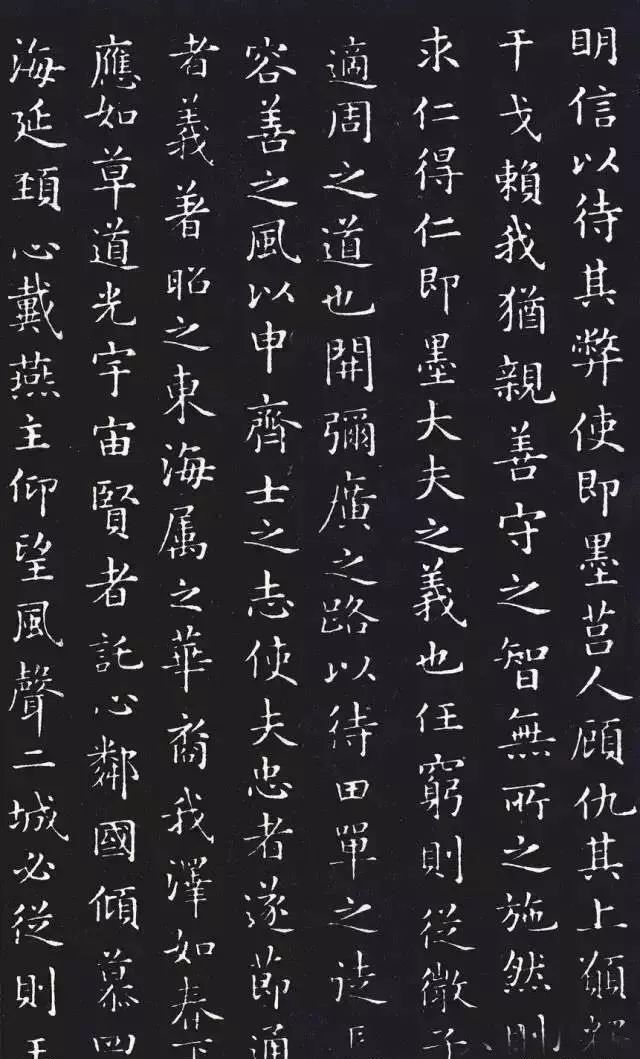 明信以待其弊使即墨莒人顧仇其上願
干戈賴我猶親善守之智無所之施然則
求仁得仁即墨大夫之義也任窮則從微子
適周之道也開彌廣之路以待田單之徒長
容善之風以申齊士之志使夫忠者遂節通
者義著昭之東海属之華裔我澤如春下
應如草道光宇宙賢者託心鄰國傾慕四
海延頸心戴燕主仰望風聲二城必從則王